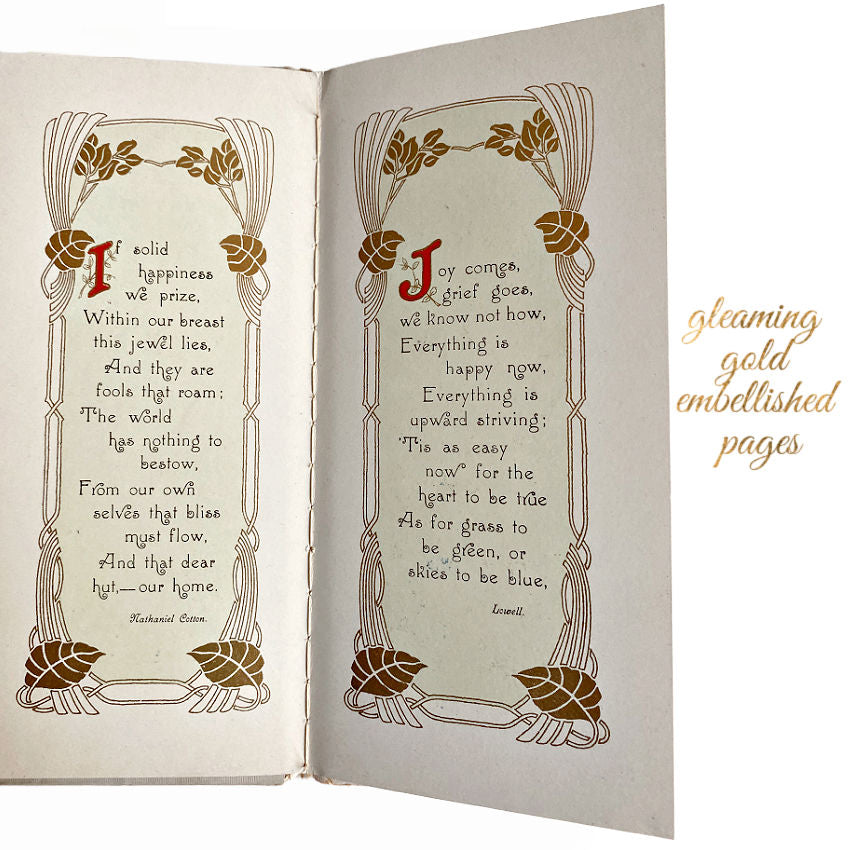 If solid
happiness
we prize,
Within our breast
this jewel lies,
And they are
fools that roam;
The world
has nothing to
bestow,
From our own
selves that bliss
must flow,
And that dear
hut,—our home.
Nathaniel Cotton.
Joy comes,
grief goes,
we know not how,
Everything is
happy now,
Everything is
upward striving;
'Tis as easy
now for the
heart to be true
As for grass to
be green, or
skies to be blue,
Lowell.
gleaming
gold
embellished
pages